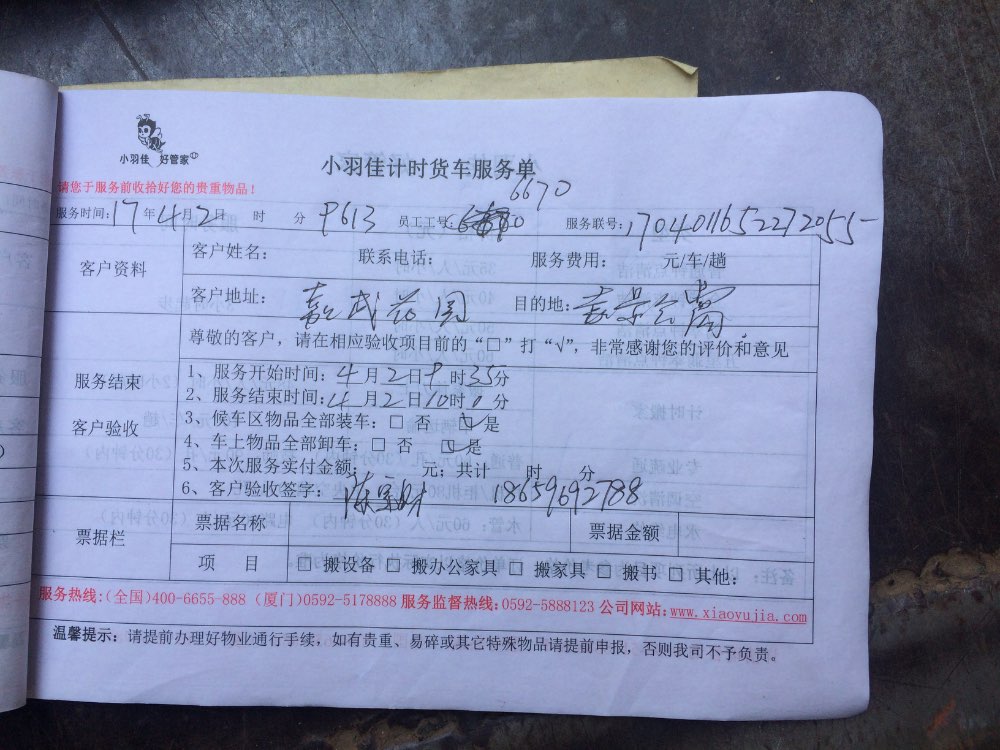 小羽佳 好管家
小羽佳计时货车服务单
请您于服务前收拾好您的贵重物品！
6670
服务时间：17年4月2日 时 分 P613 员工工号： 服务联号：1704011652272055
客户资料
客户姓名： 联系电话： 服务费用： 元/车/趟
客户地址： 花园 目的地：
服务结束
客户验收
尊敬的客户，请在相应验收项目前的“□”打“√”，非常感谢您的评价和意见
1、服务开始时间：4月2日9时35分
2、服务结束时间：4月2日10时0分
3、候车区物品全部装车：□ 否 ☑ 是
4、车上物品全部卸车：□ 否 ☑ 是
5、本次服务实付金额： 元；共计 时 分
6、客户验收签字： 18659692788
票据栏
票据名称 票据金额
项 目 □ 搬设备 □ 搬办公家具 □ 搬家具 □ 搬书 □ 其他：
服务热线：(全国)400-6655-888 (厦门)0592-5178888 服务监督热线：0592-5888123 公司网站：www.xiaoyujia.com
温馨提示：请提前办理好物业通行手续，如有贵重、易碎或其它特殊物品请提前申报，否则我司不予负责。